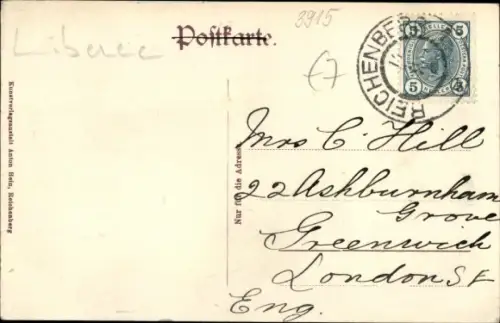 3915
Postkarte.
Liberec
€7
REICHENBERG
5 5
5 5
Kunstverlagsanstalt Anton Hein, Reichenberg
Nur für die Adresse
Mrs C Hill
22 Ashburnham
Grove
Greenwich
London SE
Eng.